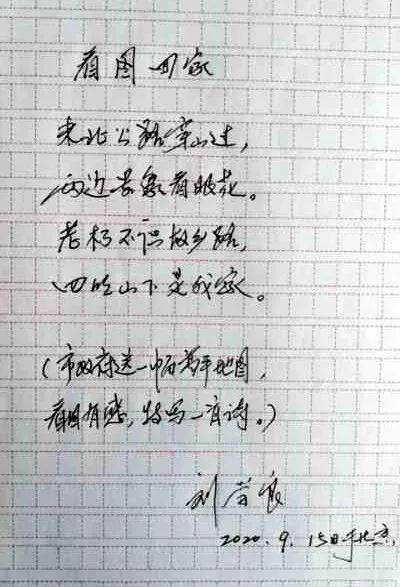 看图回家
东北公路穿山过,
两边景象看眼花。
老朽不识故乡路,
四 山下是我家。
(市政府送一幅 地图,
看图有感,特写一首诗。)
刘
2020.9.15日于北京